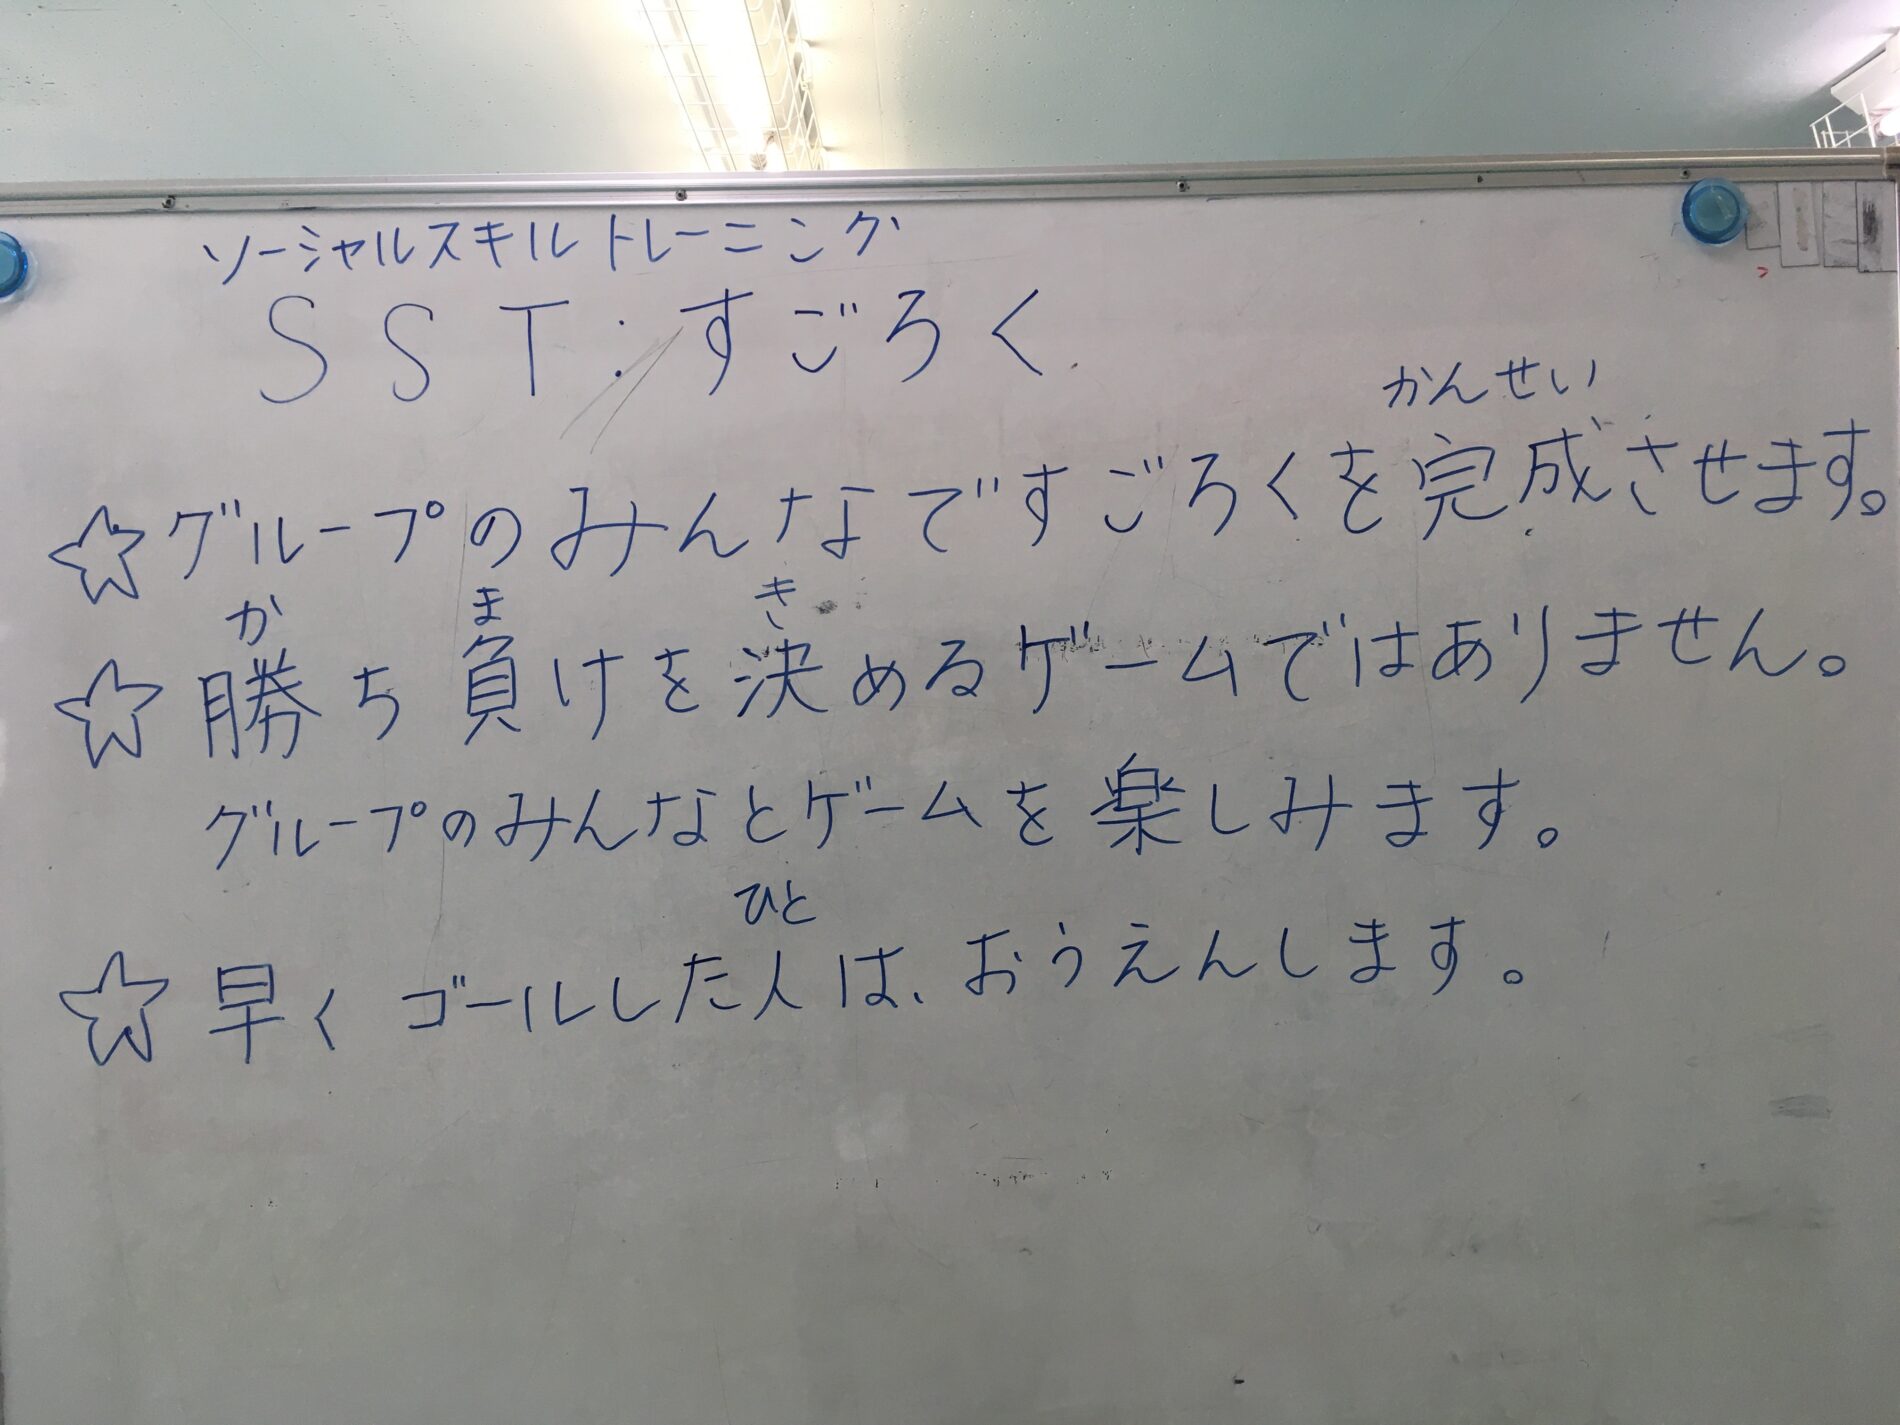 ソーシャルスキルトレーニング
SST:すごろく
かんせい
☆グループのみんなですごろくを完成させます。
か ま き
☆勝ち負けを決めるゲームではありません。
グループのみんなとゲームを楽しみます。
ひと
☆早くゴールした人は、おうえんします。